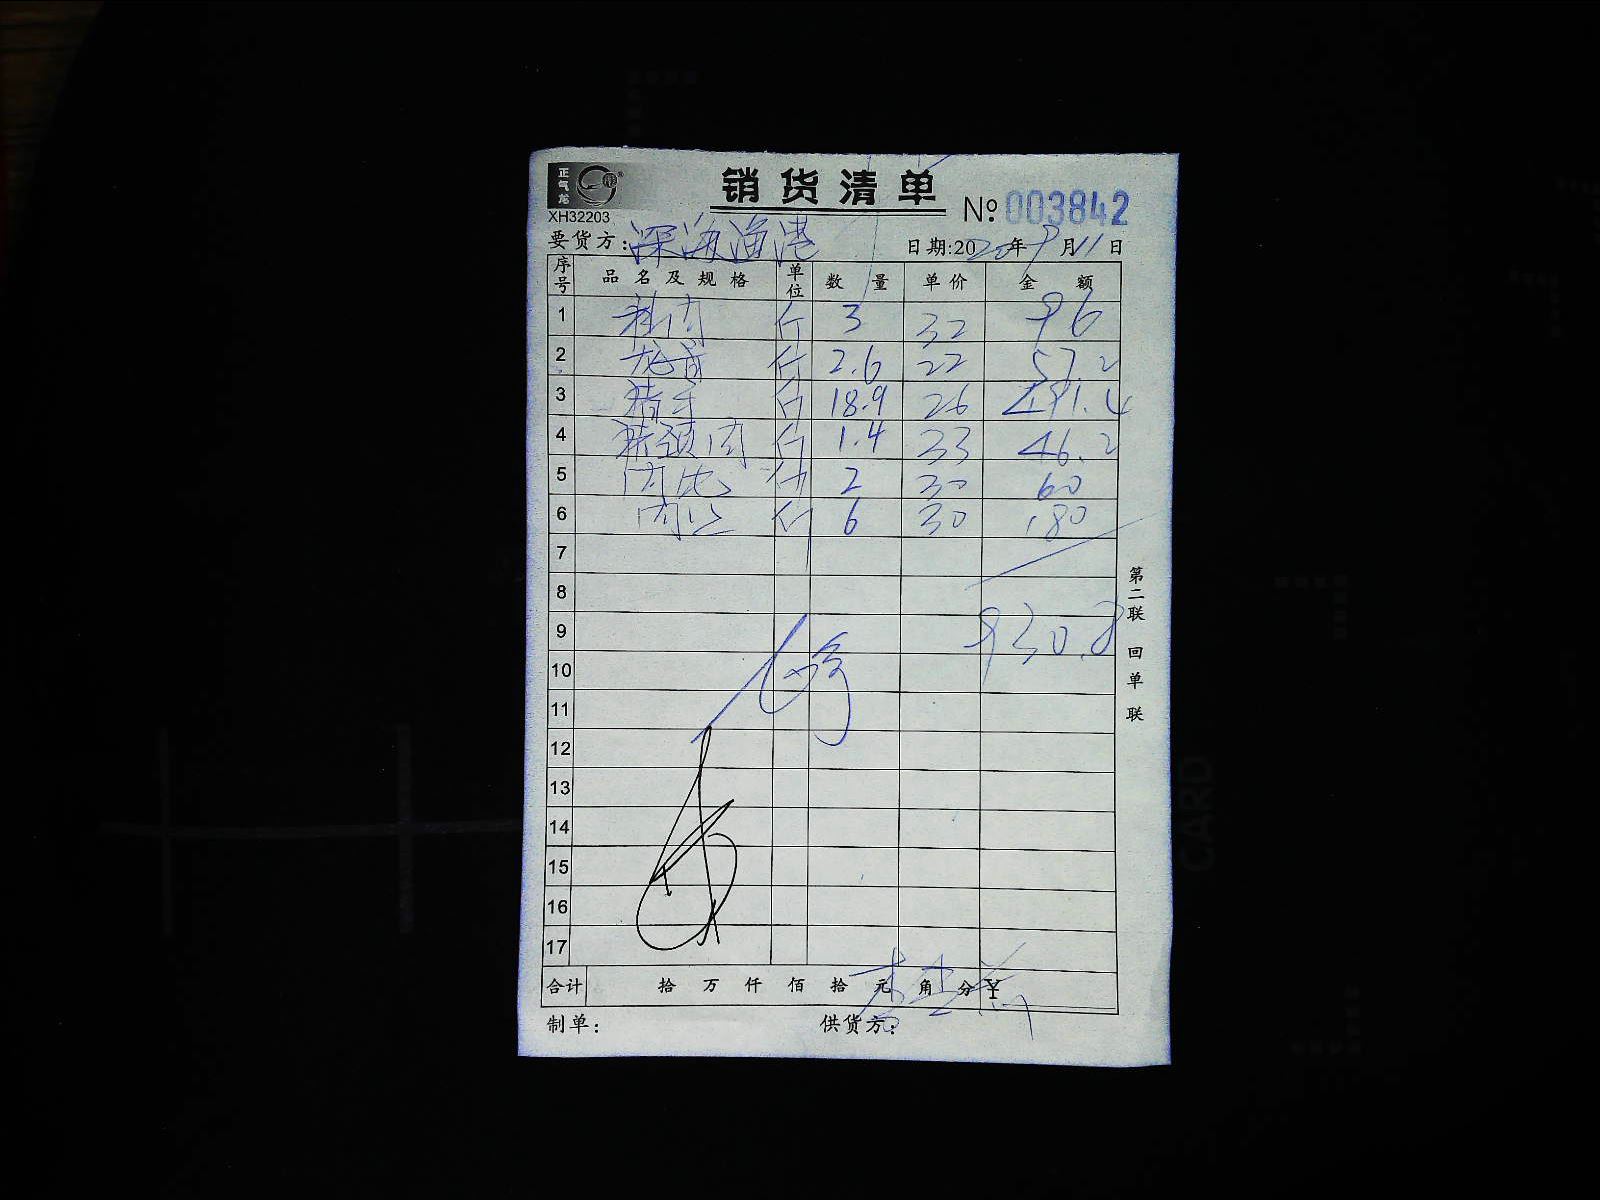 正气龙
销货清单
XH32203
№ 003842
要货方: 深海渔港 日期:2020年9月11日
序号 品名及规格 单位 数量 单价 金额
1 斤 3 32 96
2 龙骨 斤 2.6 22 57.2
3 猪手 斤 18.9 26 491.4
4 猪颈肉 斤 1.4 33 46.2
5 斤 2 30 60
6 斤 6 30 180
7
8
9 930.8
10
11
12
13
14
15
16
17
合计 拾 万 仟 佰 拾 元 角 分 ¥
制单: 供货方:
第二联 回单联
CARD